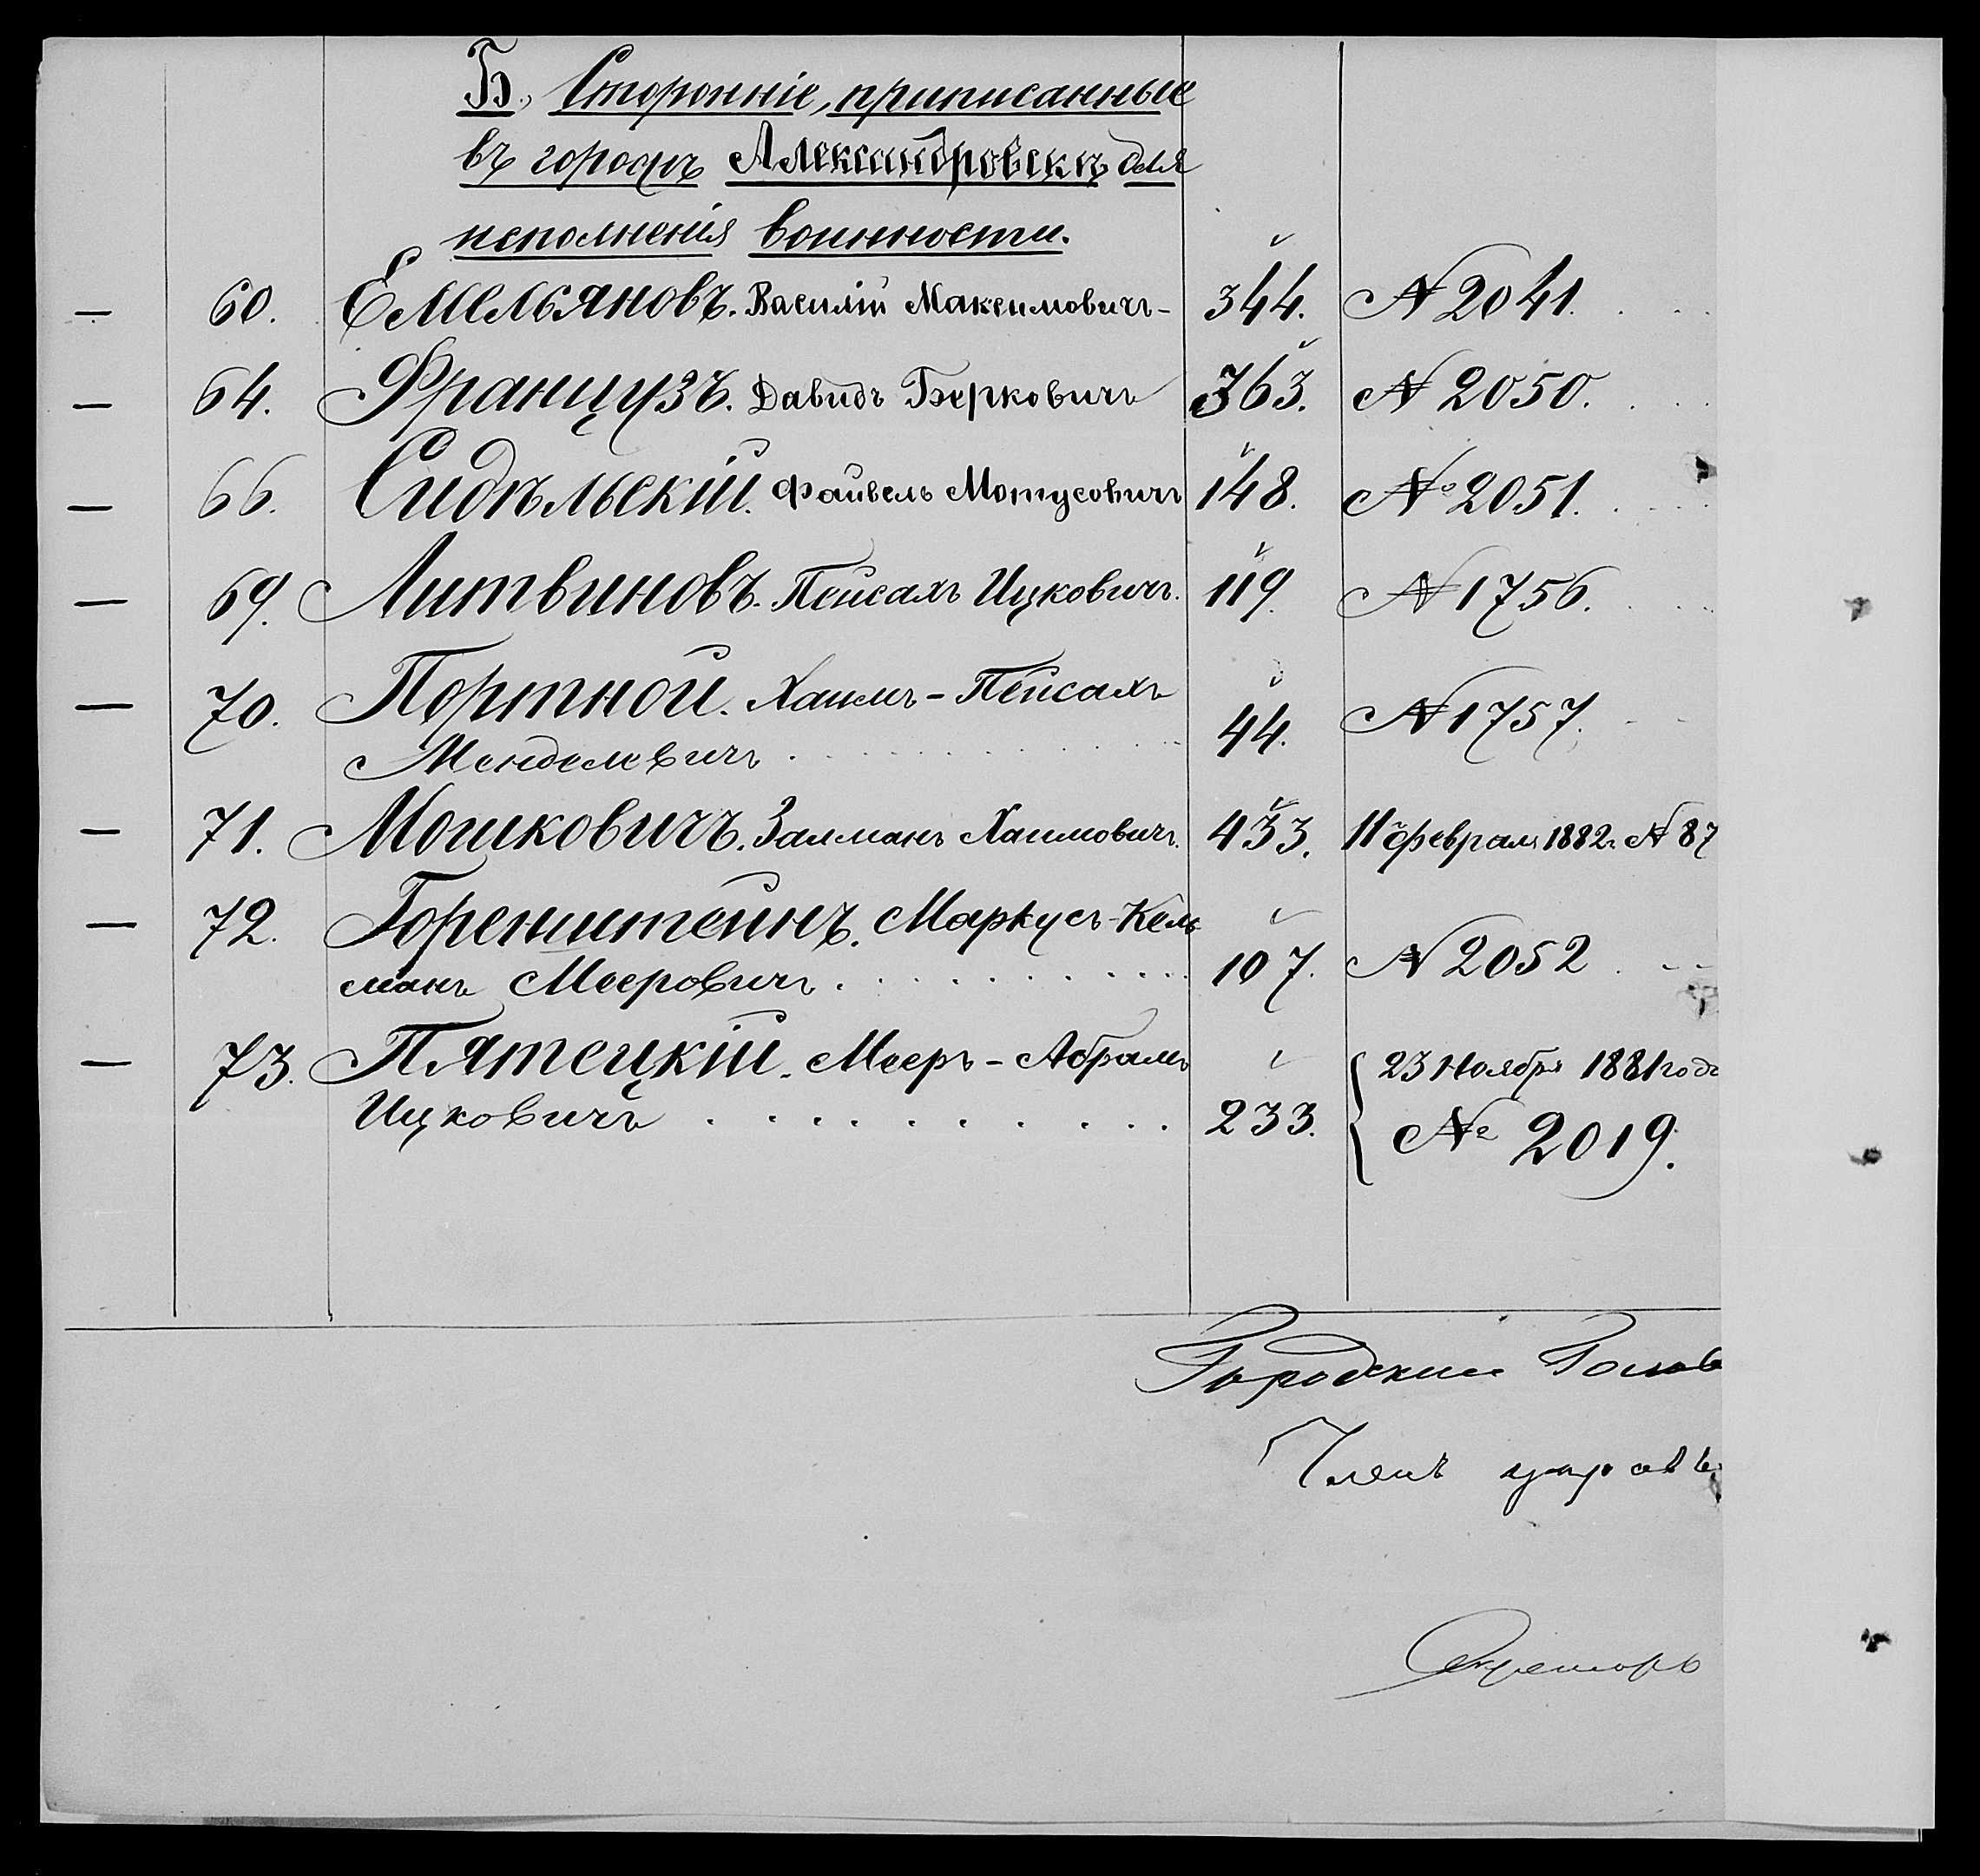 Б., Сторонніе, приписанные
въ городѣ Александровскѣ для
исполненія воинности.
— 60. Емельяновъ. Василій Максимовичъ – 344. № 2041. . . .
— 64. Французъ. Давидъ Берковичъ 363. № 2050. . . .
— 66. Сидѣльскій. Файвель Мотусовичъ 148. № 2051. . . . .
— 69. Литвиновъ. Пейсахъ Ицковичъ. 119. № 1756. . . .
— 70. Портной. Хаимъ-Пейсахъ
Менделевичъ . . . . . . . . . . 44. № 1757. - -
— 71. Мошковичъ. Залманъ Хаимовичъ. 433. 11 Февраля 1882 г. № 87
— 72. Горенштейнъ. Маркусъ-Кель
манъ Мееровичъ . . . . . . . . . . 107. № 2052 . - -
— 73. Пятецкій. Мееръ-Абрамъ 23 Ноября 1881 года
Ицковичъ . . . . . . . . . . 233. № 2019.
Городской Голов
Членъ управы
Секретарь